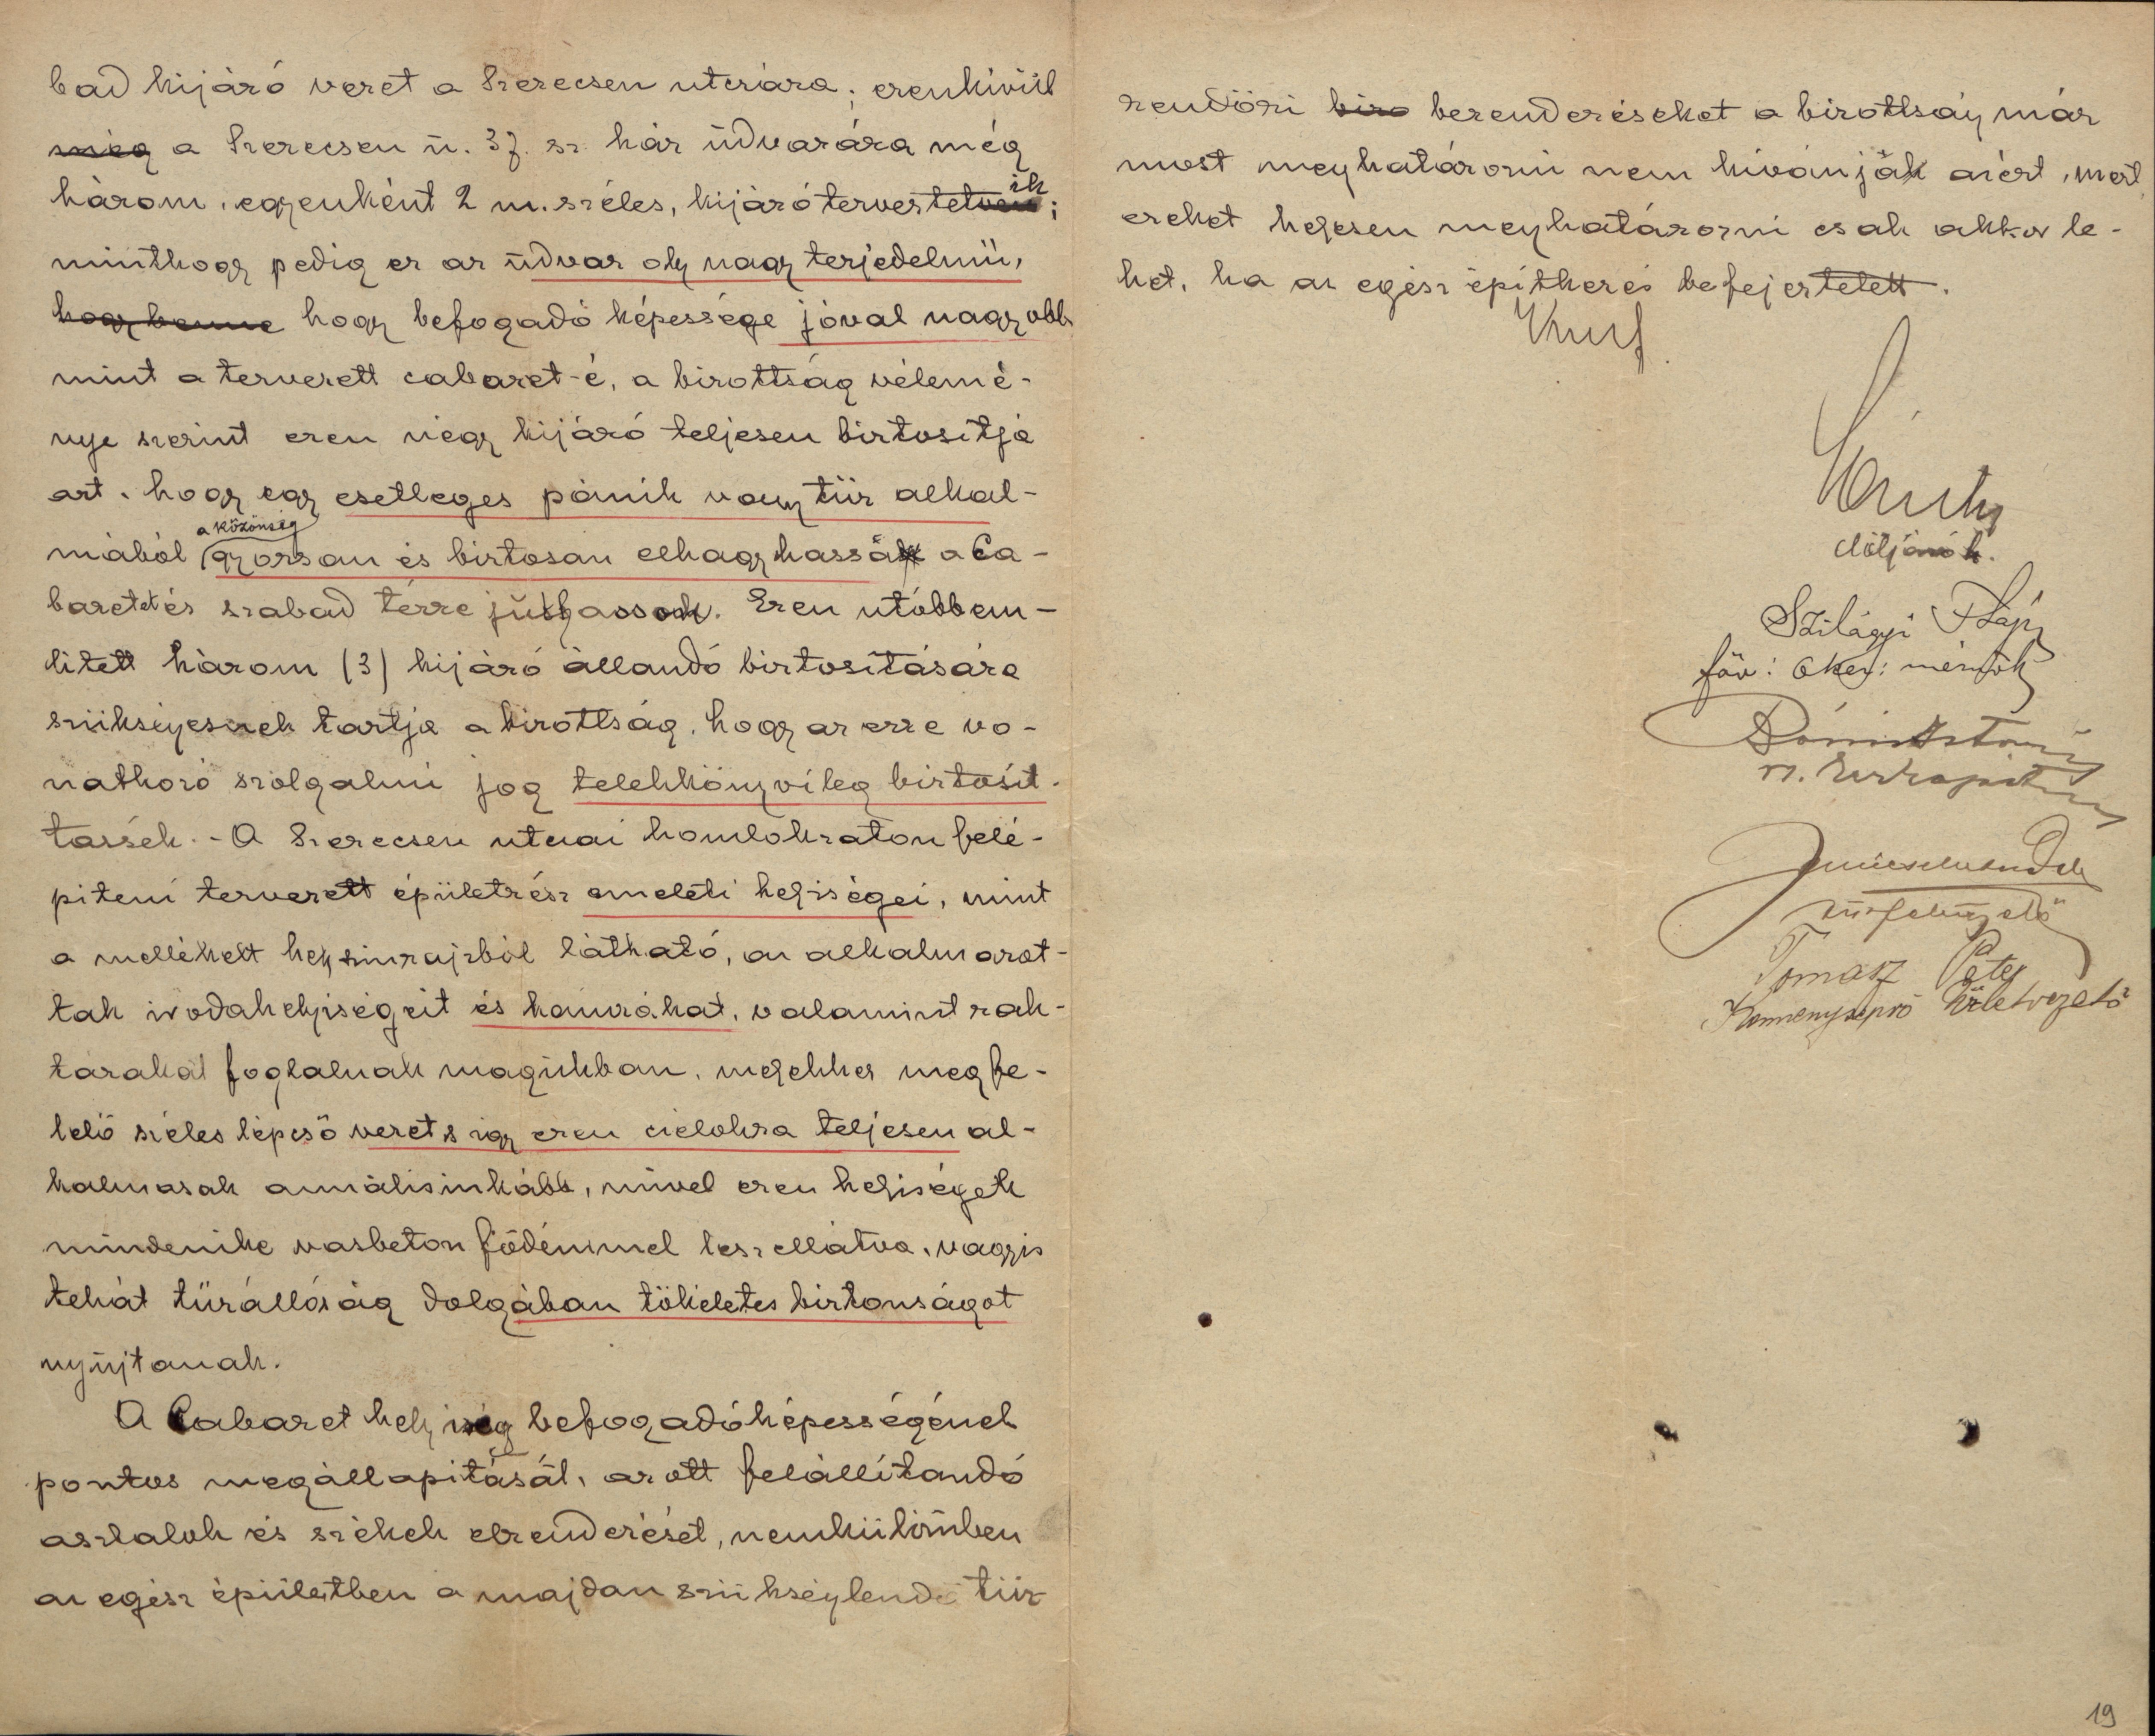 bad kijáró vezet a Szerecsen utczára; ezenkívül
még a Szerecsen u. 37. sz. ház udvarára még
három, egyenként 2 m. széles, kijáró terveztetik;
minthogy pedig ez az udvar oly nagy terjedelmű,
hogy benne hogy befogadó képessége jóval nagyobb
mint a tervezett cabaret-é, a bizottság vélemé-
nye szerint ezen négy kijáró teljesen biztosítja
azt, hogy egy esetleges pánik vagy tűz alkal-
mából a közönség gyorsan és biztosan elhagyhassa a Ca-
baretet és szabad térre juthasson. Ezen utóbb em-
lített három (3) kijáró állandó biztosítására
szükségesnek tartja a bizottság, hogy az erre vo-
natkozó szolgalmi jog telekkönyvileg biztosít-
tassék. - A Szerecsen utcai homlokzaton felé-
píteni tervezett épületrész emeleti helyiségei, mint
a mellékelt helyszinrajzból látható, az alkalmazot-
tak irodahelyiségeit és kamrákat, valamint rak-
tárakat foglalnak magukban, melyekhez megfe-
lelő széles lépcső vezet s így ezen célokra teljesen al-
kalmasak annálisinkább, mivel ezen helyiségek
mindenike vasbeton födémmel lesz ellátva, vagyis
tehát tűzállóság dolgában tökéletes biztonságot
nyújtanak.
A Cabaret helyiség befogadóképességének
pontos megállapítását, az ott felállítandó
asztalok és székek elrendezését, nemkülönben
az egész épületben a majdan szükséglendő tűz-
rendőri bizo berendezéseket a bizottság már
most meghatározni nem kívánják azért, mert
ezeket helyesen meghatározni csak akkor le-
het, ha az egész építkezés befejeztetett.
előljáró h.
Szilágyi
föv: ker: mérnök
Tomasz Péter
Kéményseprő Üzletvezető
19